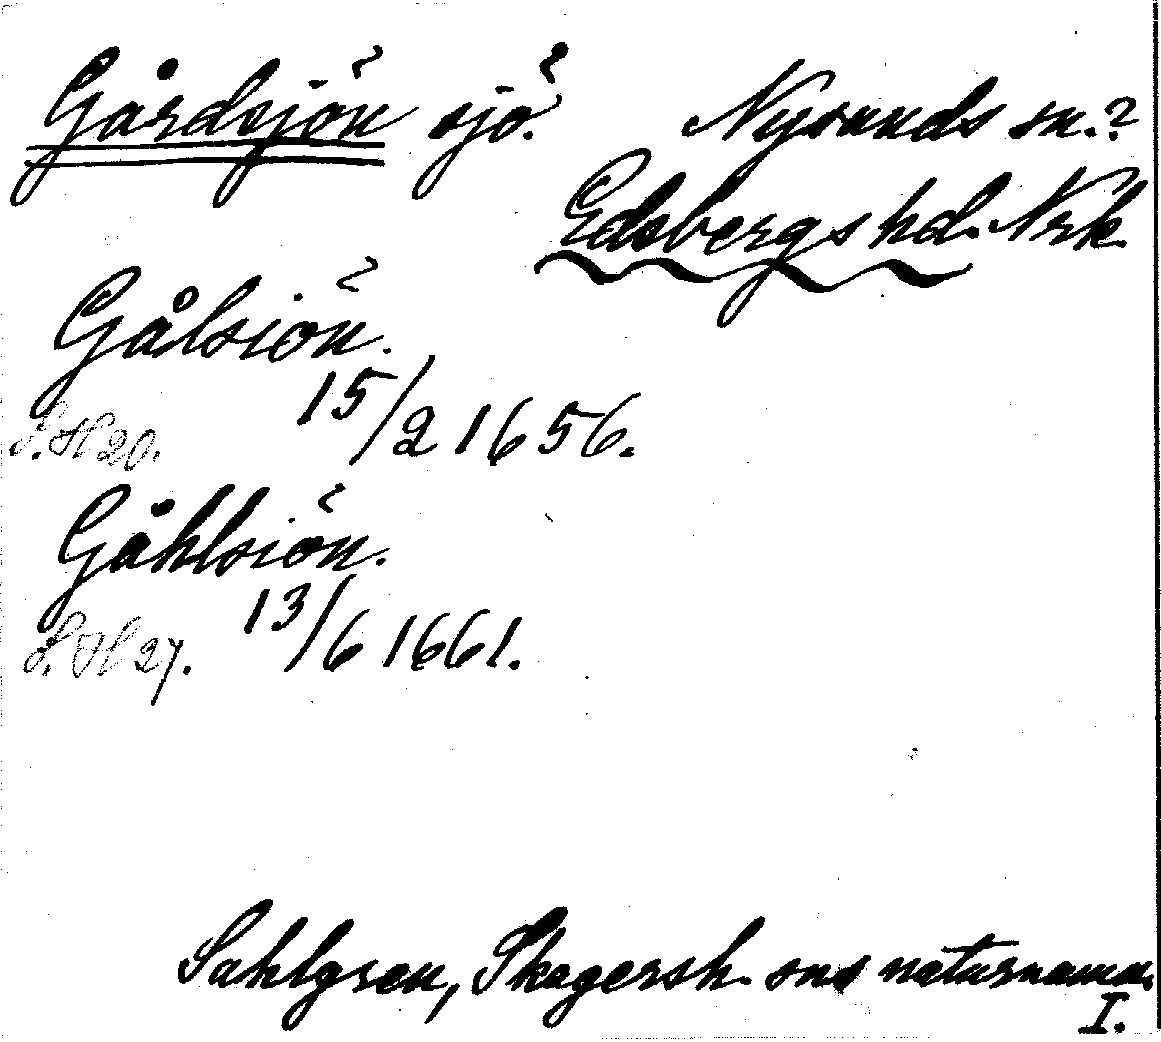 Gårdsjön sjö. Nysunds sn.?
Edsbergs hd. Nrk.
Gålsiön.
S.H 20. 15/2 1656.
Gåhlsiön.
S.H 27. 13/6 1661.
Sahlgren, Skagersh. sns naturnamn.
I.